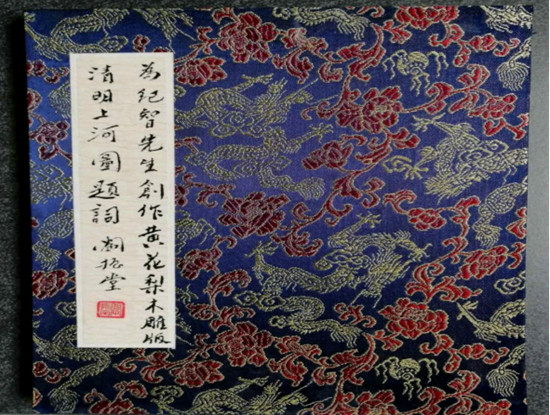 為紀智先生創作黄花梨木雕版
清明上河圖題詞 闞振堂